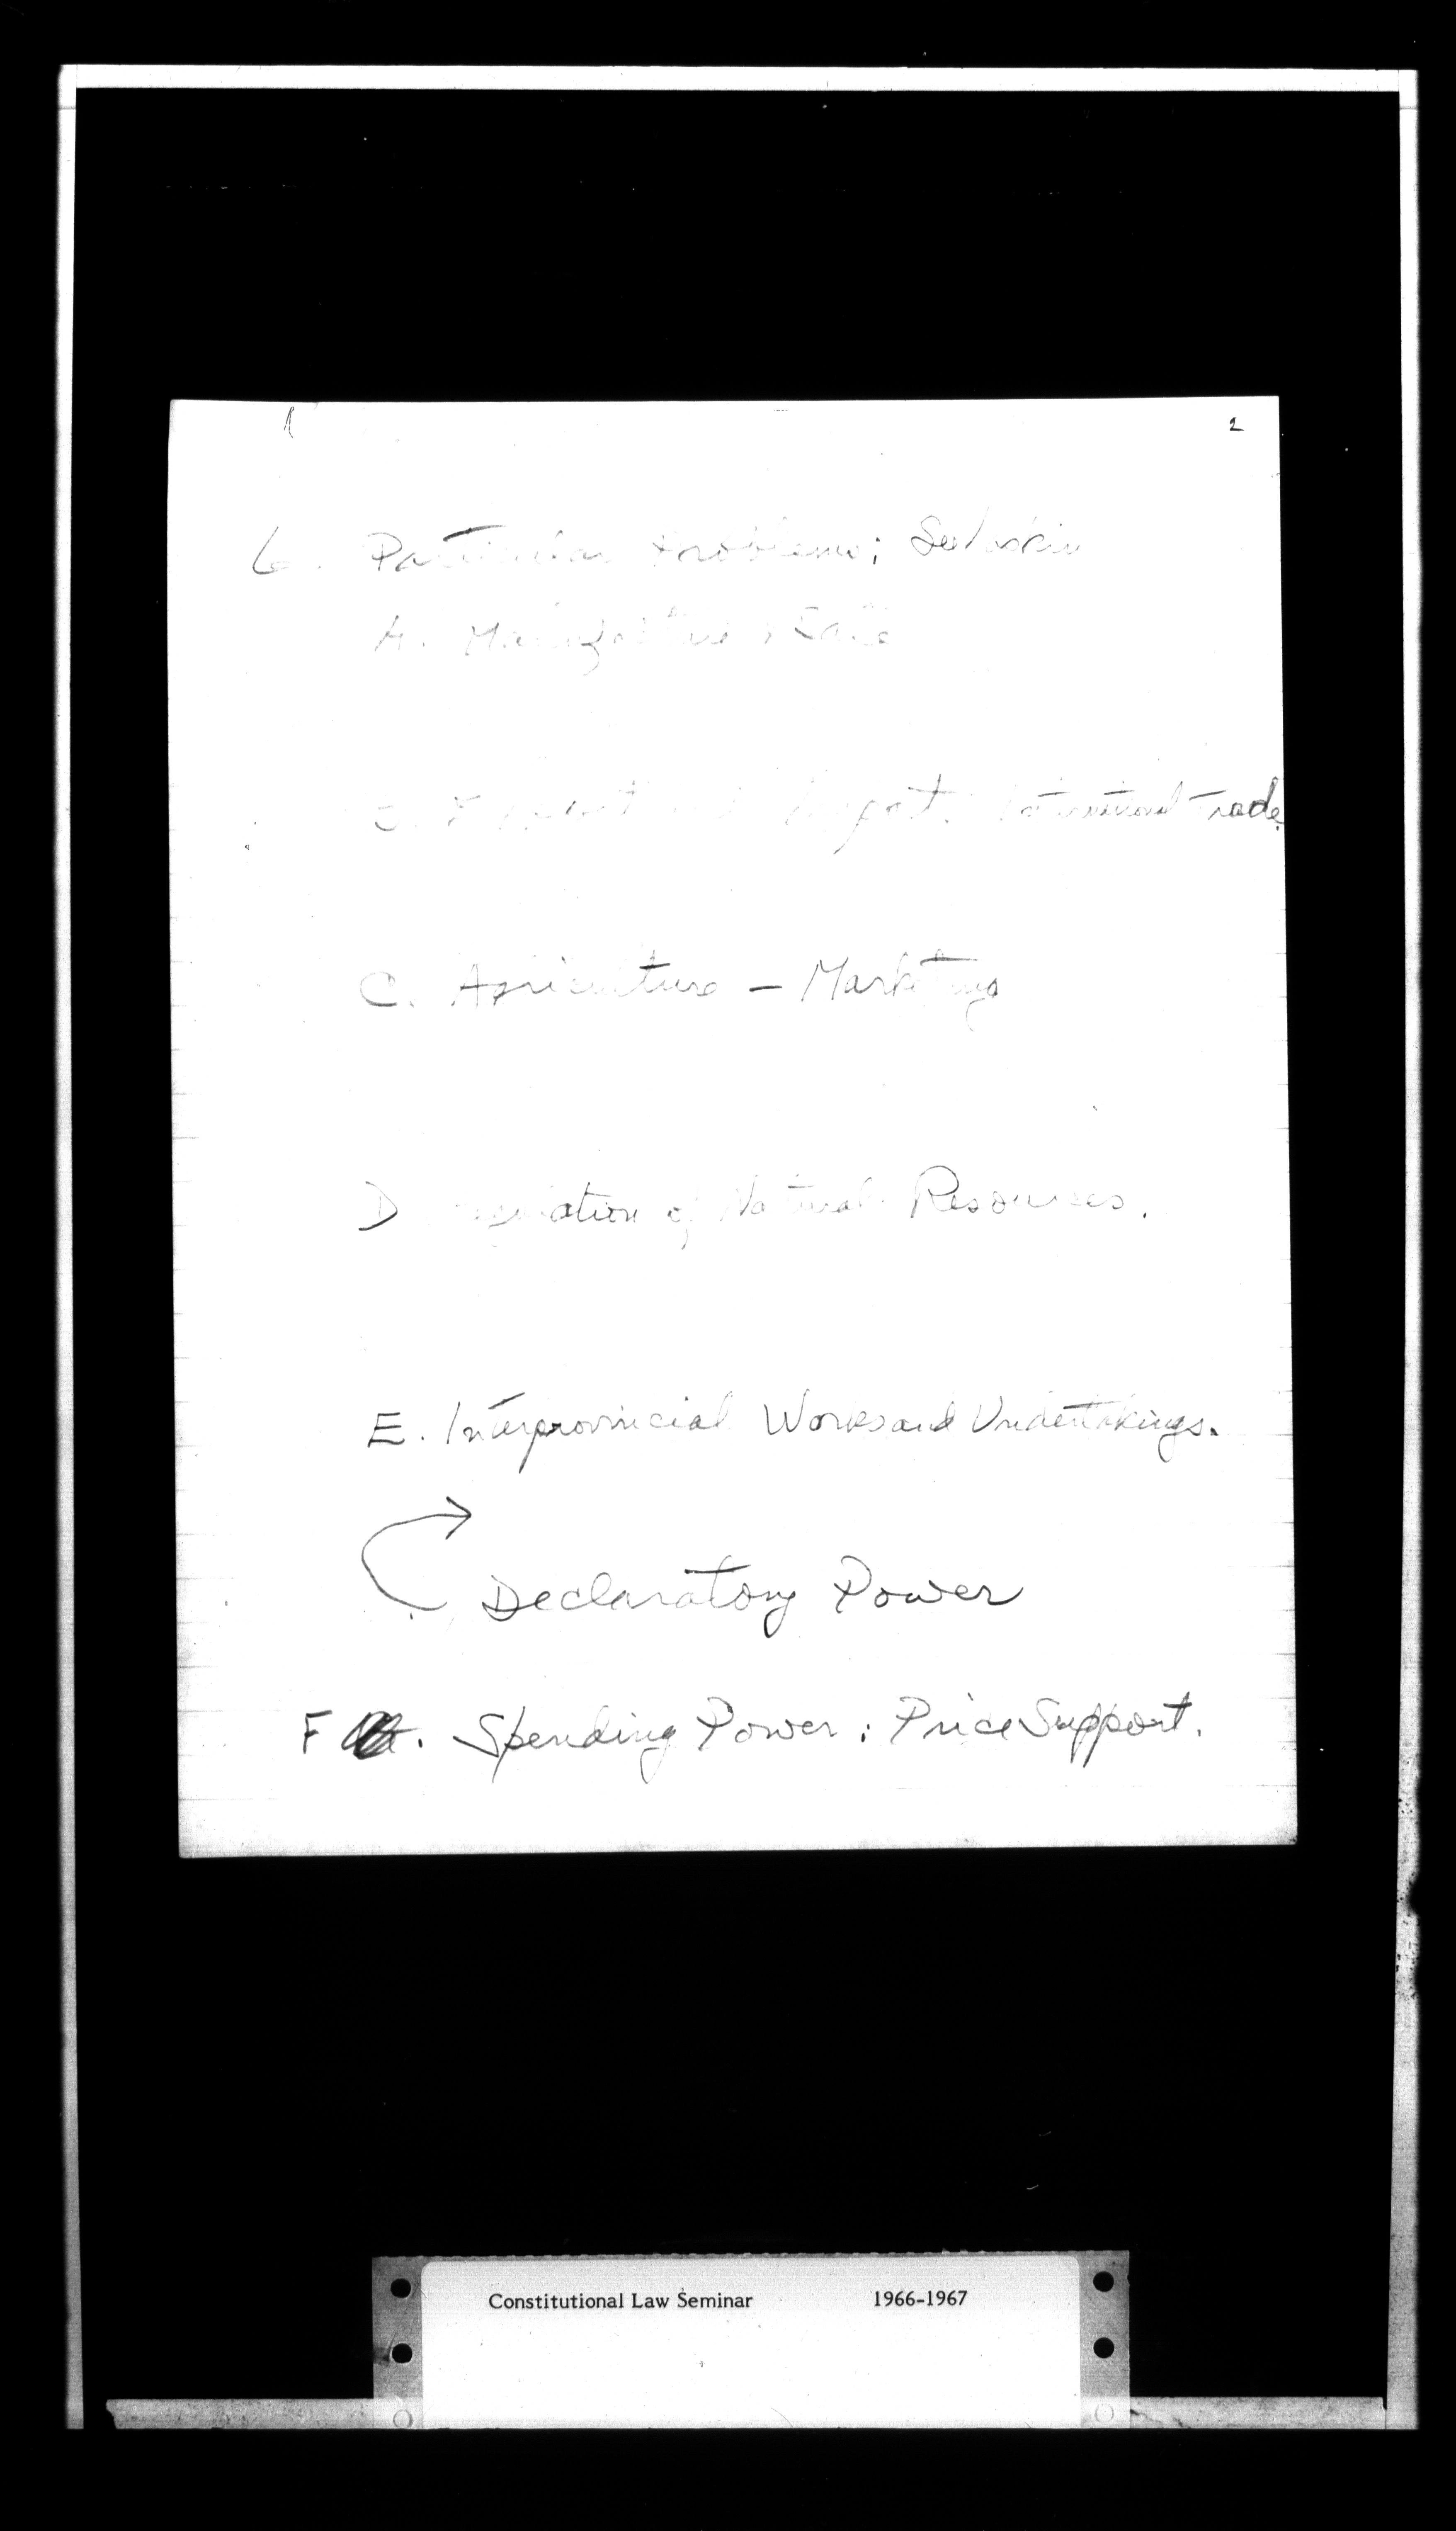 2
6. Particular Problems;
A. Manufacture & Sale
B. Export and Import. International Trade.
C. Agriculture — Marketing
D Regulation of Natural Resources.
E. Interprovincial Works and Undertakings.
Declaratory Power
F. Spending Power; Price Support.
Constitutional Law Seminar 1966-1967